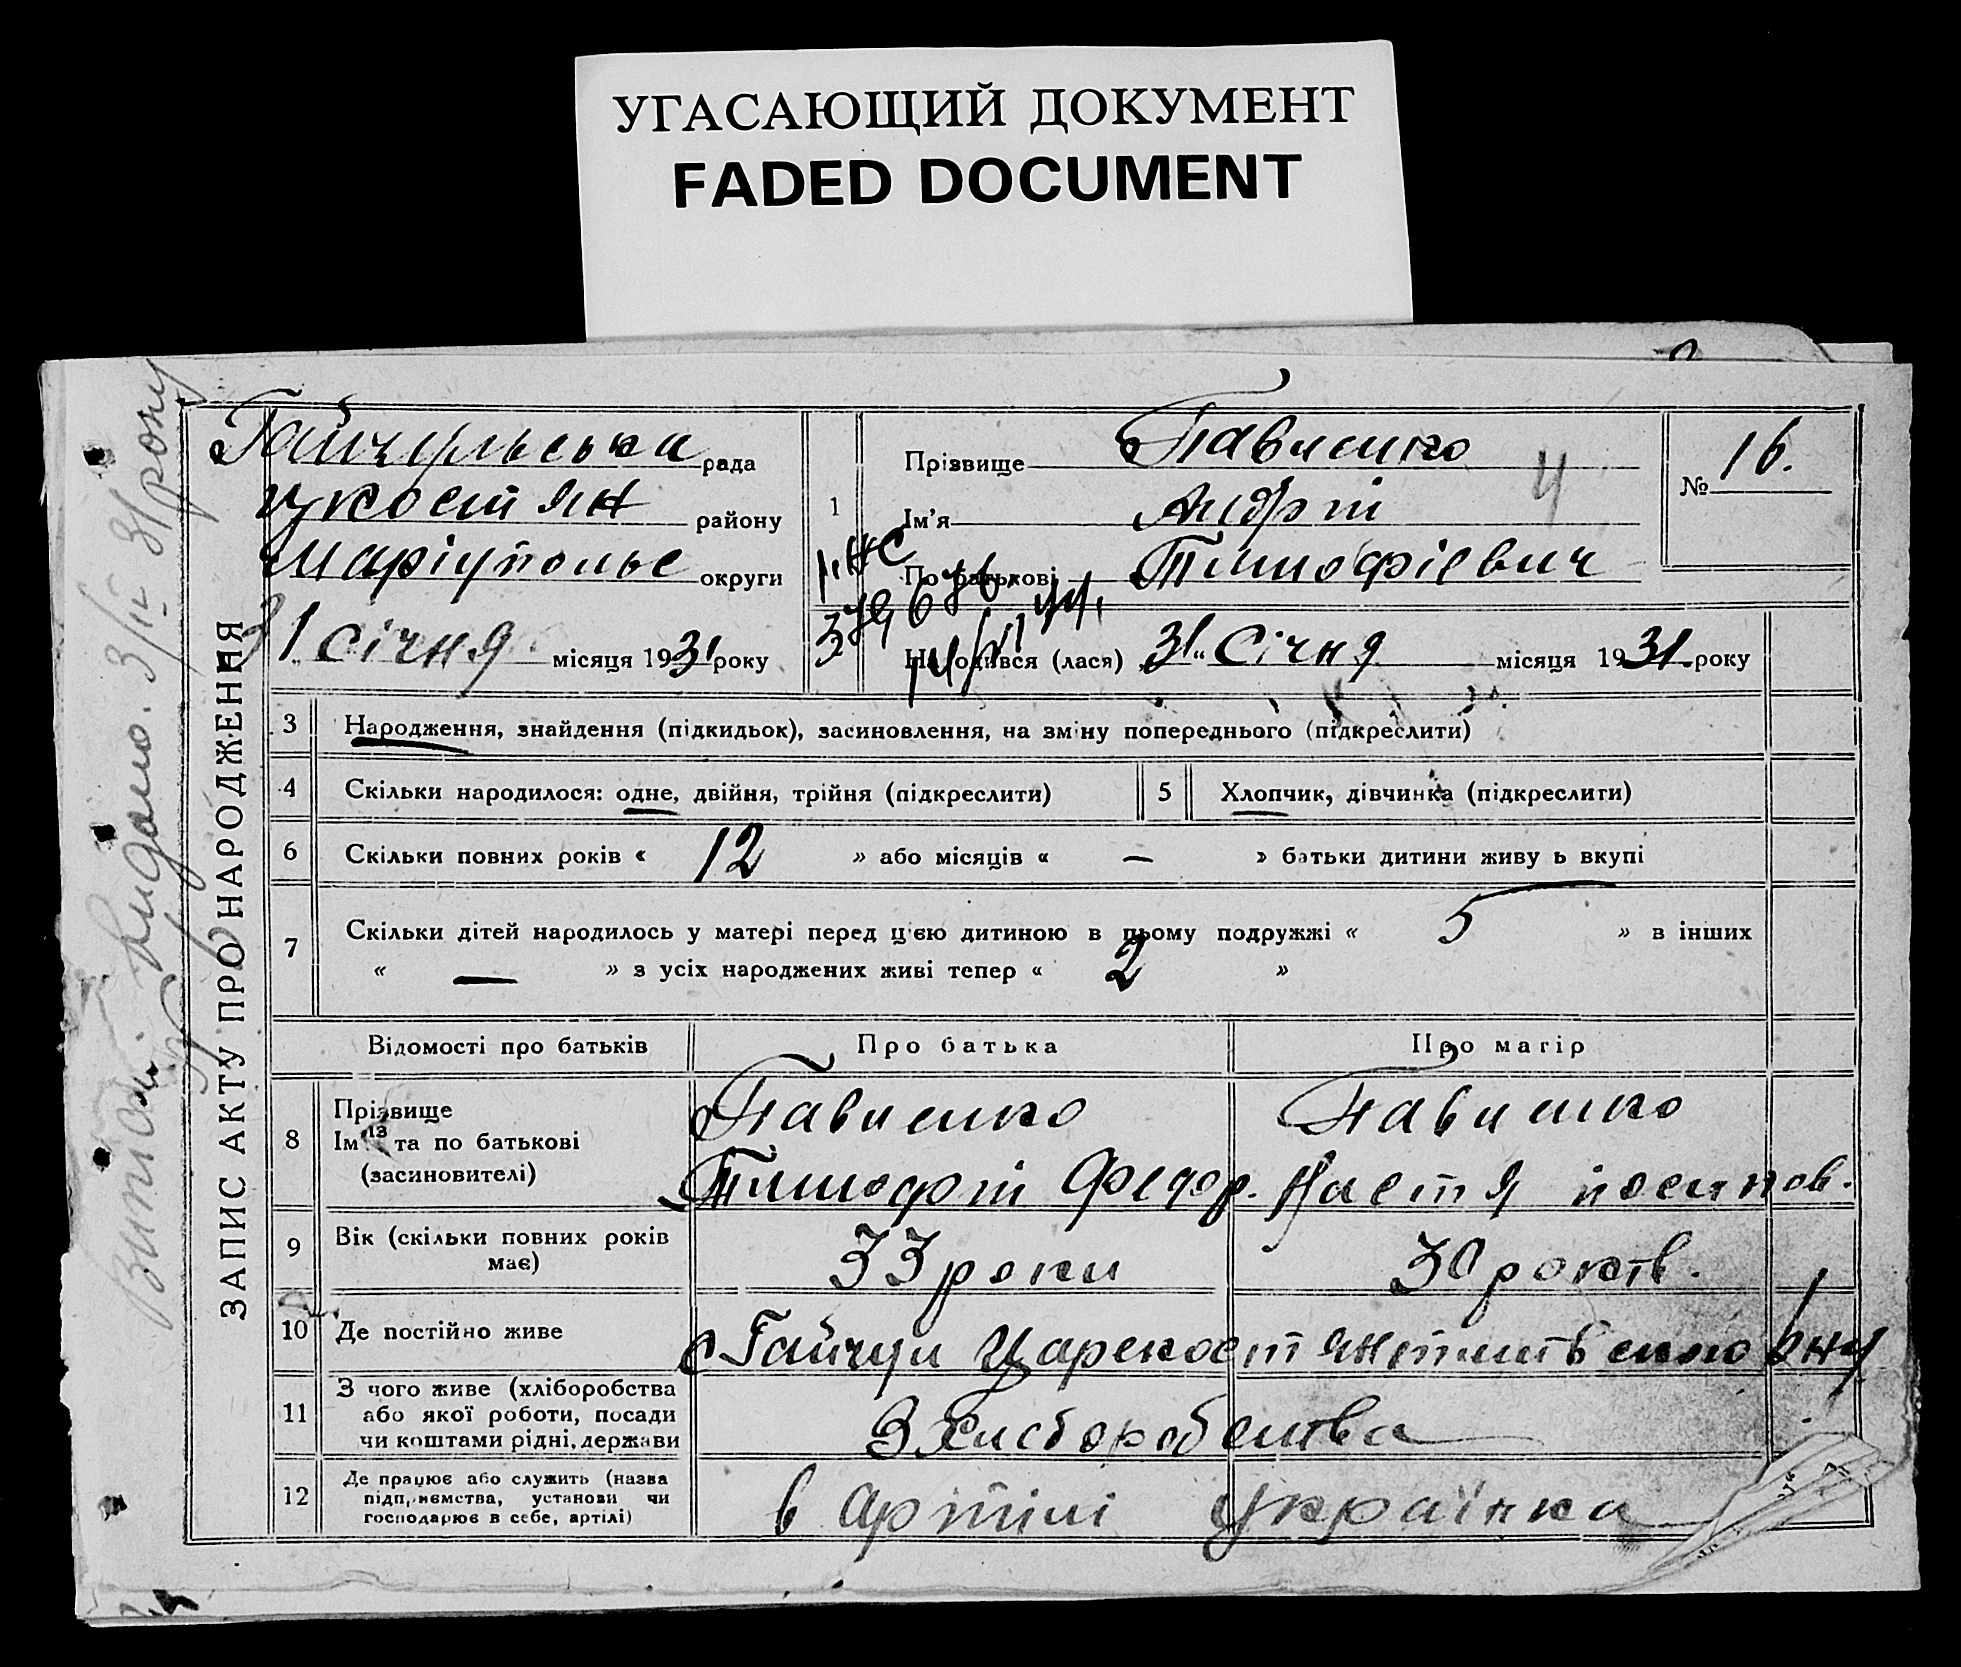 УГАСАЮЩИЙ ДОКУМЕНТ
FADED DOCUMENT
Гайчульська рада
району
округи
31 січня місяця 1931 року
ЗАПИС АКТУ ПРО НАРОДЖЕННЯ
№ 16.
1 Прізвище Павленко
Ім'я Андрій
По батькові Тимофієвич
Народився (лася) 31 " Січня місяця 1931 року
3 Народження, знайдення (підкидьок), засиновлення, на зміну попереднього (підкреслити)
4 Скільки народилося: одне, двійня, трійня (підкреслити)
5 Хлопчик, дівчинка (підкреслити)
6 Скільки повних років « 12 » або місяців « — » батьки дитини живуть вкупі
7 Скільки дітей народилось у матері перед ц'єю дитиною в цьому подружжі « 5 » в інших
« — » з усіх народжених живі тепер « 2 »
Відомості про батьків Про батька Про матір
8 Прізвище Павленко Павленко
Ім'я та по батькові Тимофій Федор. Настя
(засиновителі)
9 Вік (скільки повних років має) 33 роки 30 років.
10 Де постійно живе с Гайчул
11 З чого живе (хліборобства
або якої роботи, посади
чи коштами рідні, держави
З Хліборобства
12 Де працює або служить (назва
підприємства, установи чи
господарює в себе, артілі)
в артілі Українка